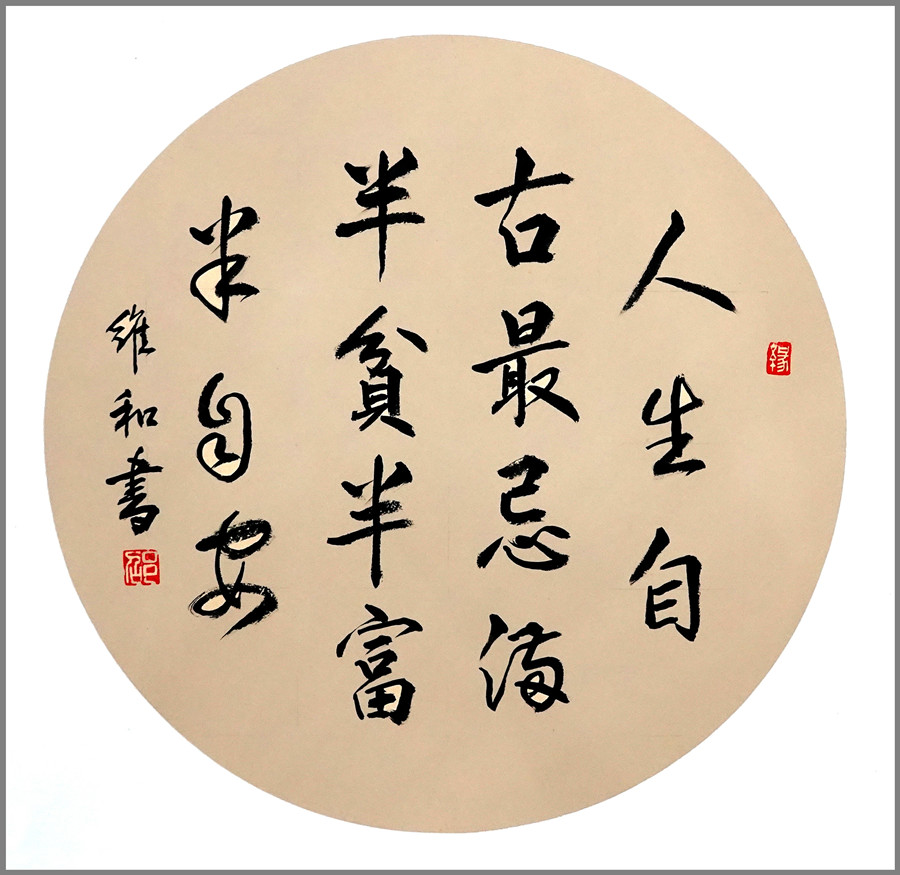 人生自
古最忌满
半贫半富
半自安
維和書
缘